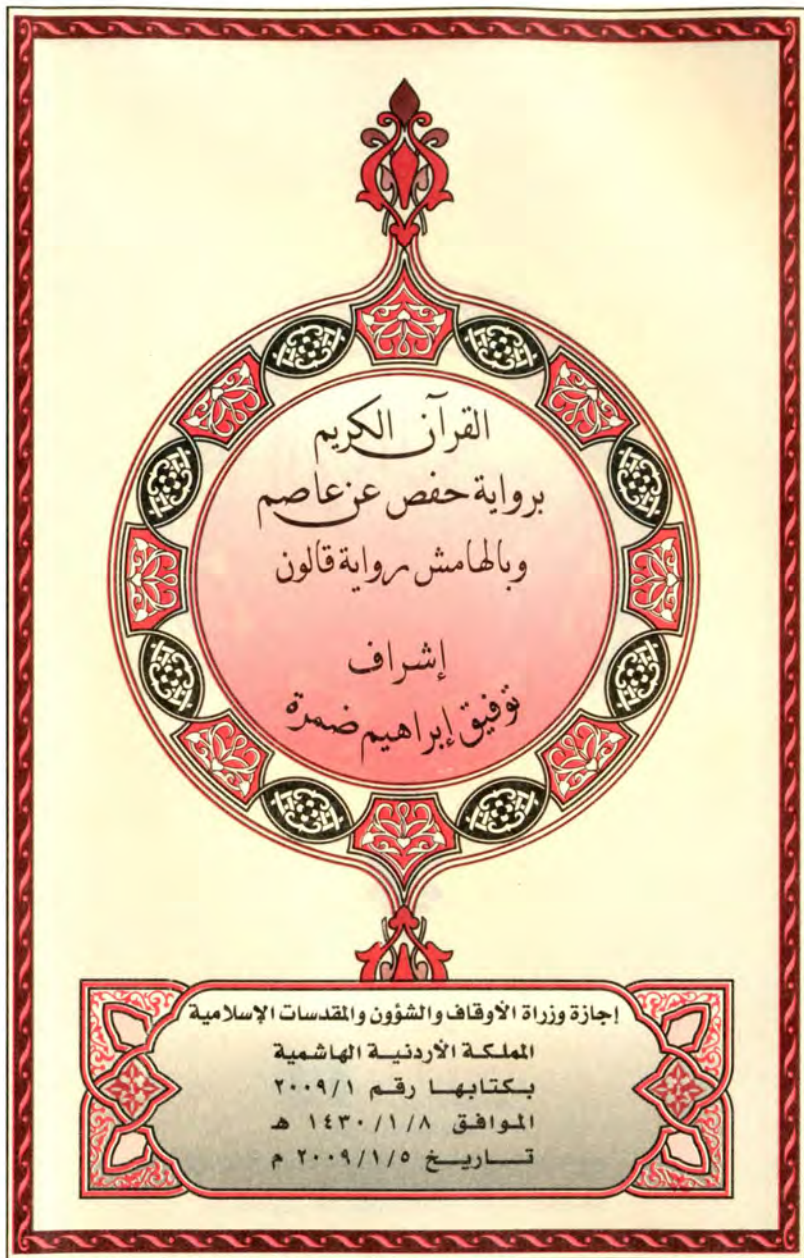 القرآن الكريم
برواية حفص عن عاصم
وبالهامش رواية قالون
إشراف
توفيق إبراهيم ضمرة
إجازة وزارة الأوقاف والشؤون والمقدسات الإسلامية
المملكة الأردنية الهاشمية
بكتابها رقم ٢٠٠٩/١
الموافق ١٤٣٠/١/٨ هـ
تاريخ ٢٠٠٩/١/٥ م